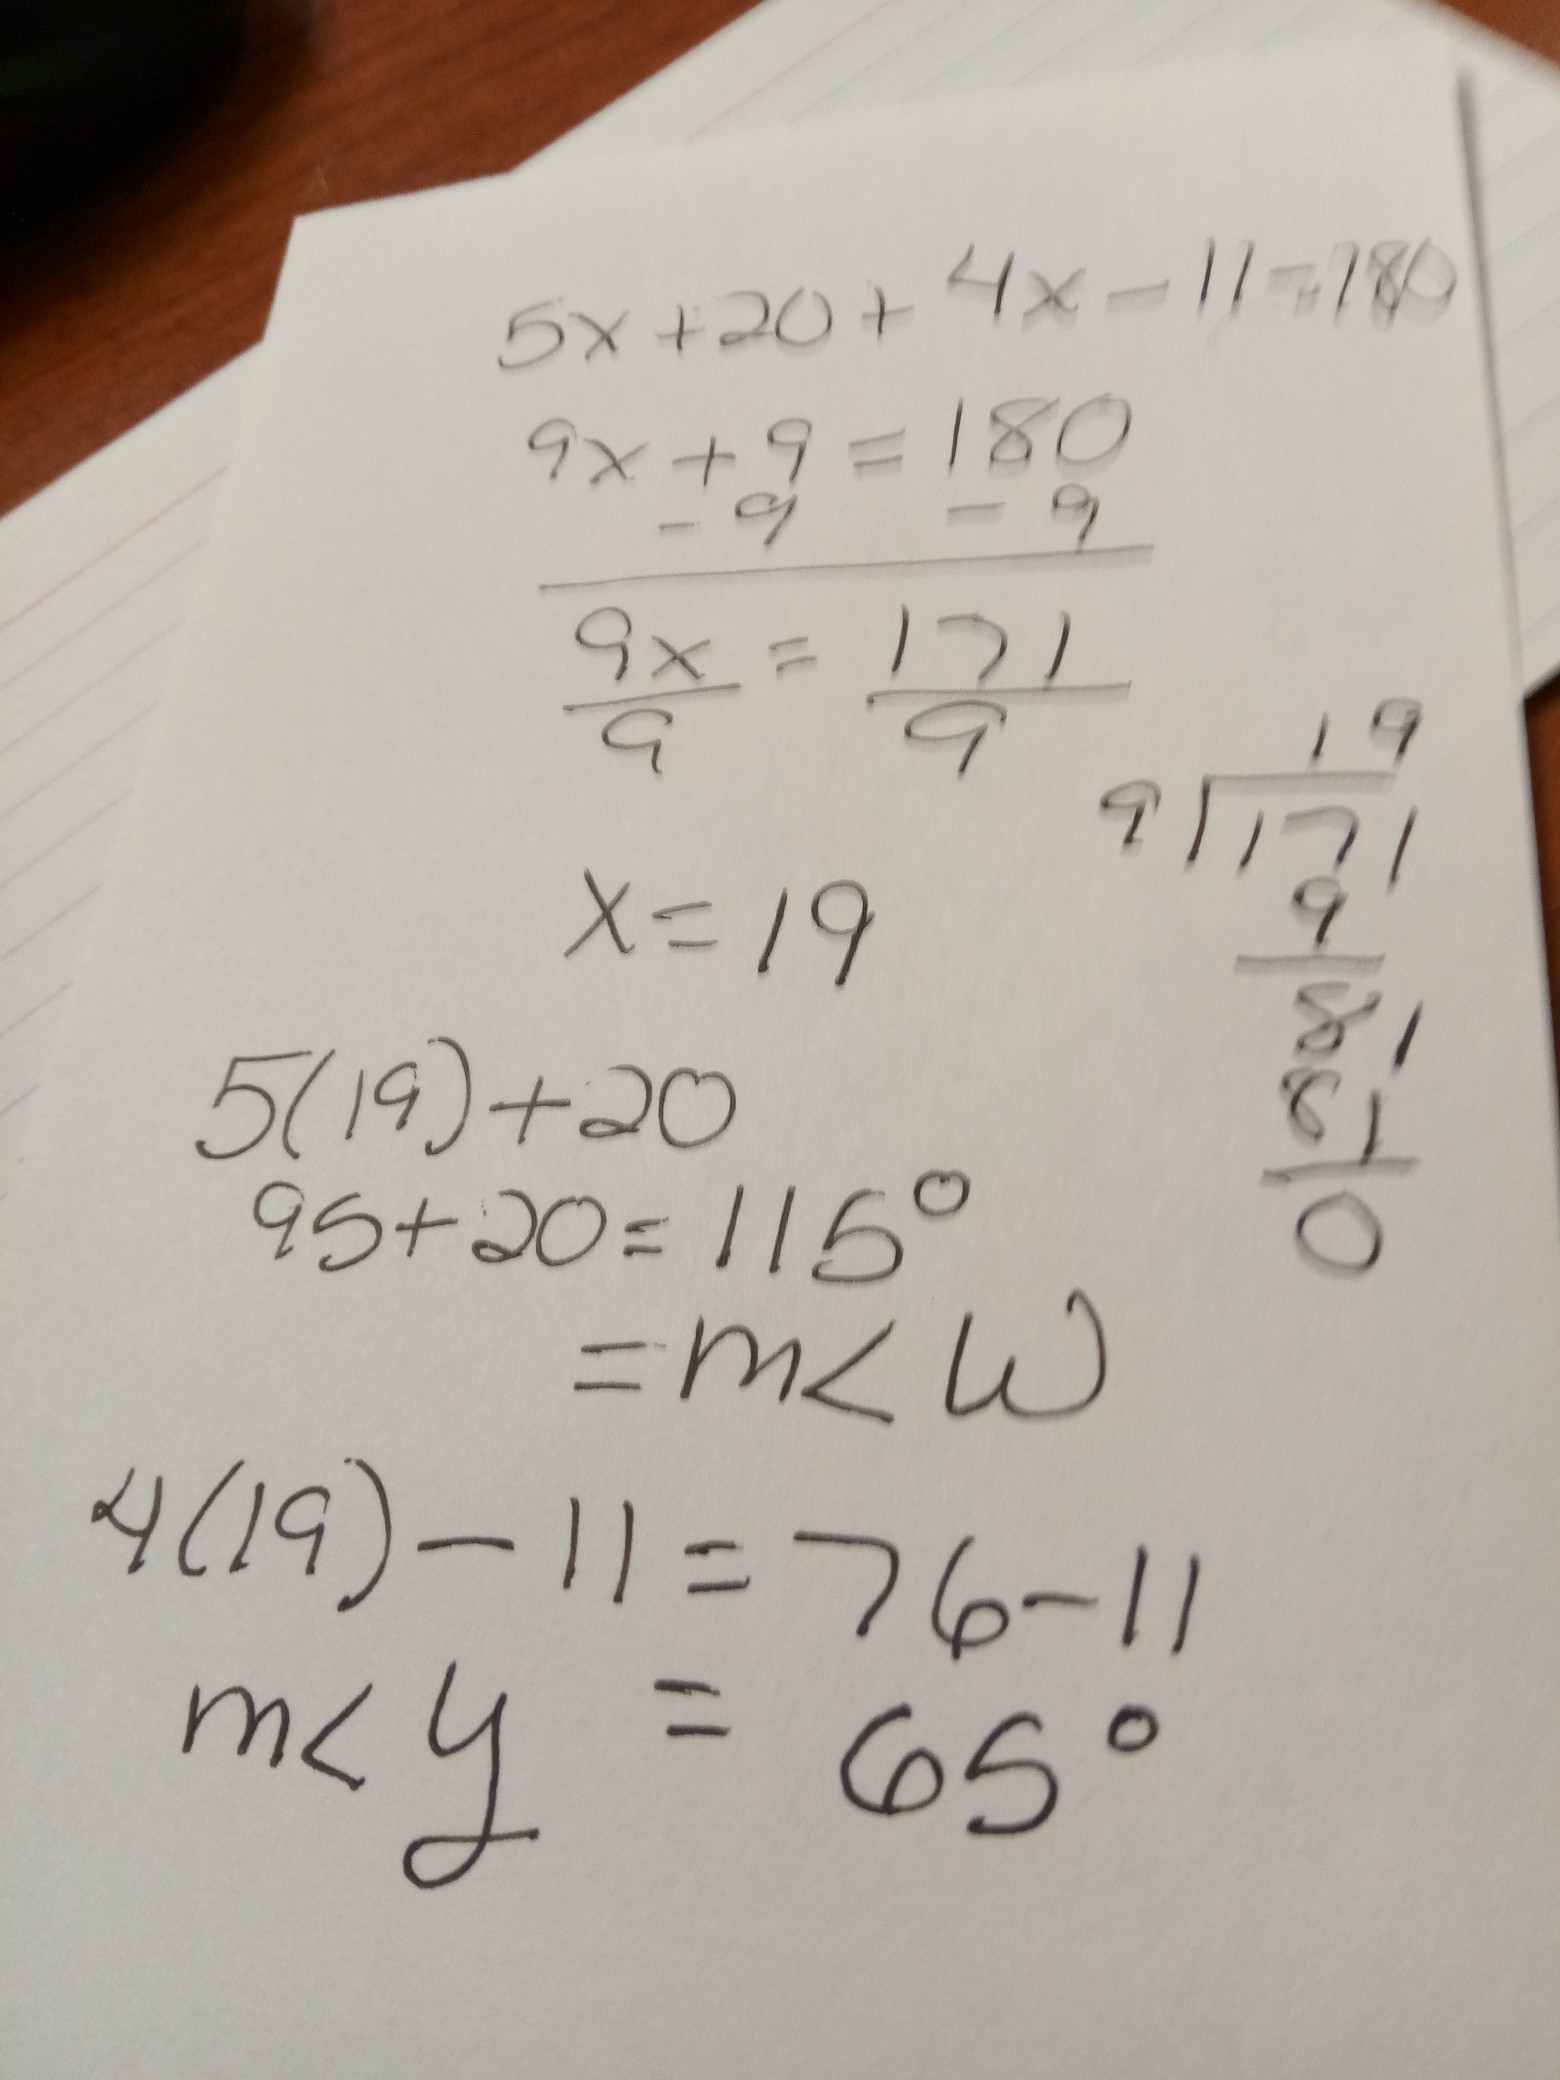 5x+20+4x-11=180
9x+9=180
-9 -9
9x = 171
9 9
19
9 171
9
81
81
0
x=19
5(19)+20
95+20=115°
=m< W
4(19)-11=76-11
m< y = 65°